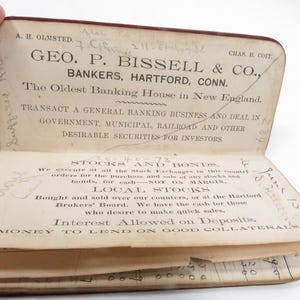 A. H. OLMSTED.
CHAS. H. COIT.
GEO. P. BISSELL & CO.,
BANKERS, HARTFORD, CONN.
The Oldest Banking House in New England.
TRANSACT A GENERAL BANKING BUSINESS AND DEAL IN
GOVERNMENT, MUNICIPAL, RAILROAD AND OTHER
DESIRABLE SECURITIES FOR INVESTORS.
STOCKS AND BONDS.
We execute at all the Stock Exchanges in this country
orders for the purchase and sale of any stocks and
bonds, for cash—NOT ON MARGIN.
LOCAL STOCKS
Bought and sold over our counters, or at the Hartford
Brokers' Board. We have the cash for those
who desire to make quick sales.
Interest Allowed on Deposits.
MONEY TO LEND ON GOOD COLLATERAL